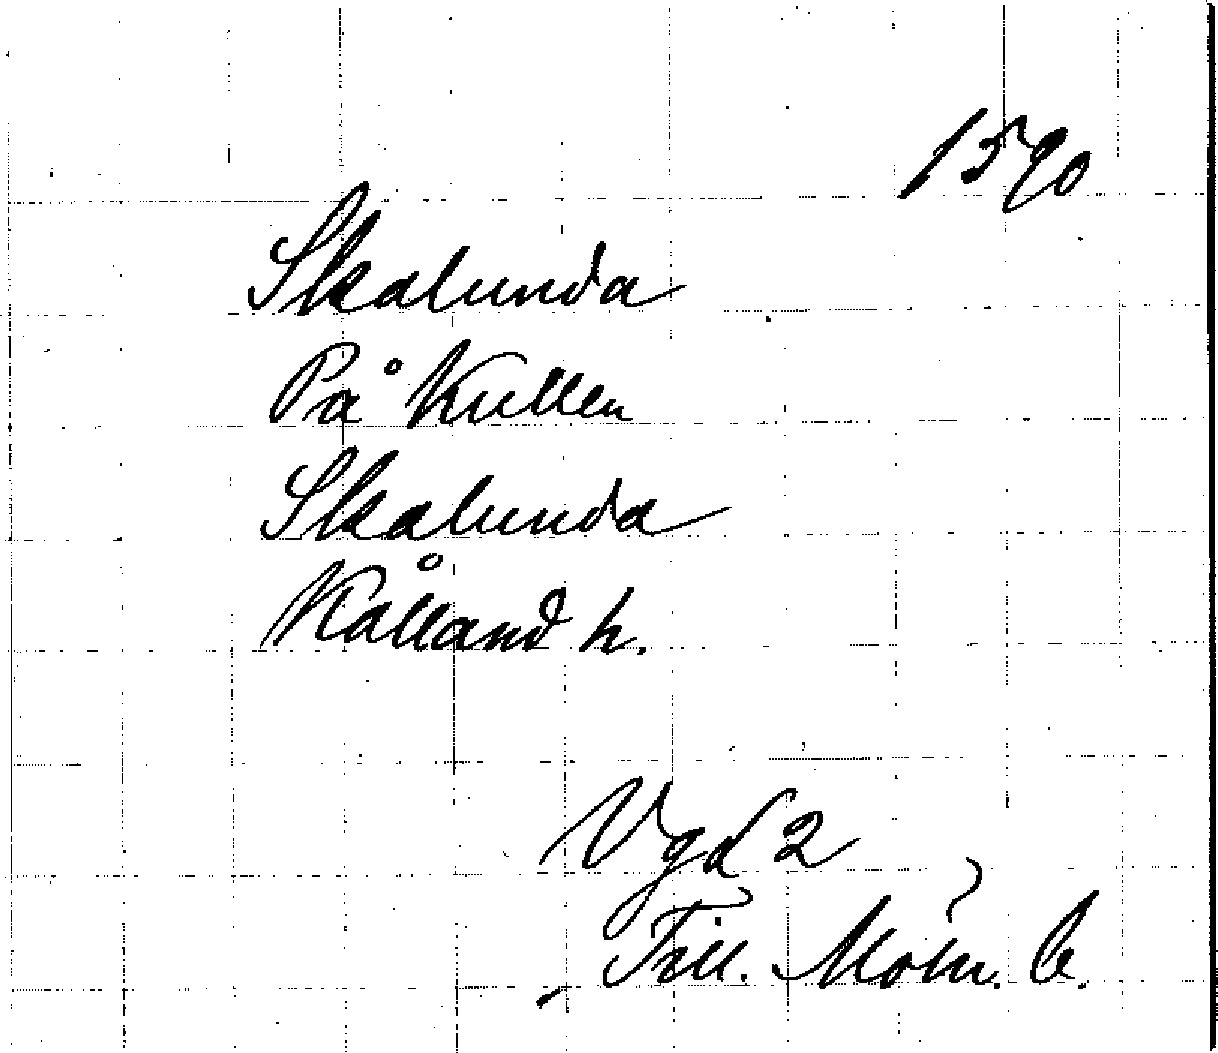 1590
Skalunda
På Kullen
Skalunda
Kålland h.
Vgd 2
Till.